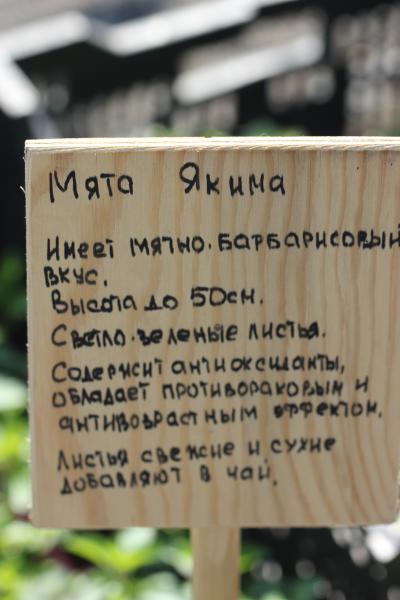 Мята Якима
Имеет мятно-барбарисовый
вкус.
Высота до 50см.
Светло-зеленые листья.
Содержит антиоксиданты,
обладает противораковым и
антивозрастным эффектом.
Листья свежие и сухие
добавляют в чай.